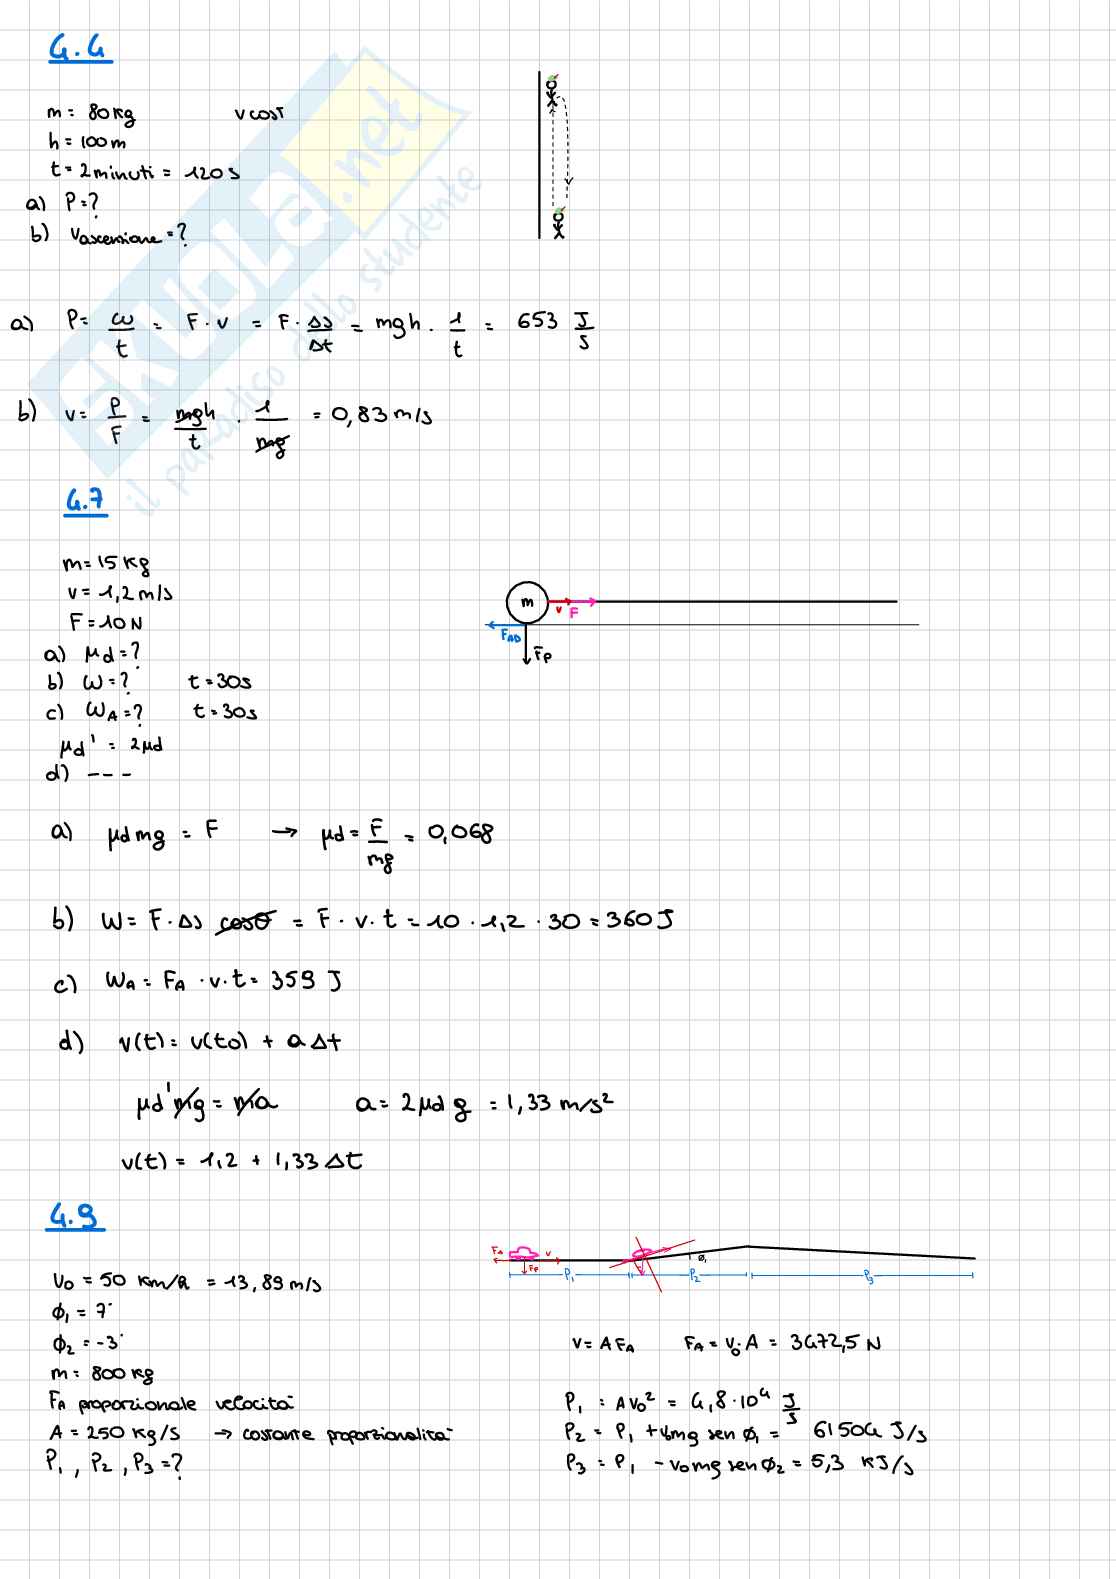 4.4
m = 80 kg   v cost
h = 100 m
t = 2 minuti = 120 s
a) P = ?
b) vascensione = ?
a) P = ω/t = F · v = F · Δs/Δt = mgh · 1/t = 653 J/s
b) v = P/F = mgh/t · 1/mg = 0,83 m/s
4.7
m = 15 kg
v = 1,2 m/s
F = 10 N
a) μd = ?
b) ω = ?   t = 30s
c) ωA = ?   t = 30s
μd' = 2μd
d) ---
m
v
F
FAD
Fp
a) μd mg = F → μd = F/mg = 0,068
b) W = F · Δs cosθ = F · v · t = 10 · 1,2 · 30 = 360 J
c) WA = FA · v · t = 359 J
d) v(t) = v(t0) + a Δt
μd' mg = ma   a = 2μd g = 1,33 m/s²
v(t) = 1,2 + 1,33 Δt
4.9
FA
v
Fp
ϕ1
P1
P2
P3
v0 = 50 km/h = 13,89 m/s
ϕ1 = 7°
ϕ2 = -3°
m = 800 kg
FA proporzionale velocità
A = 250 kg/s → costante proporzionalità
P1, P2, P3 = ?
v = A FA   FA = v0 · A = 3472,5 N
P1 = A v0² = 4,8 · 10⁴ J/s
P2 = P1 + v0 mg sen ϕ1 = 61504 J/s
P3 = P1 - v0 mg sen ϕ2 = 5,3 kJ/s
SKUOLA.net
il paradiso dello studente